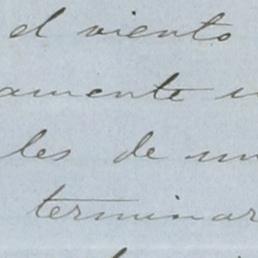 el viento
amente
les de un
terminar